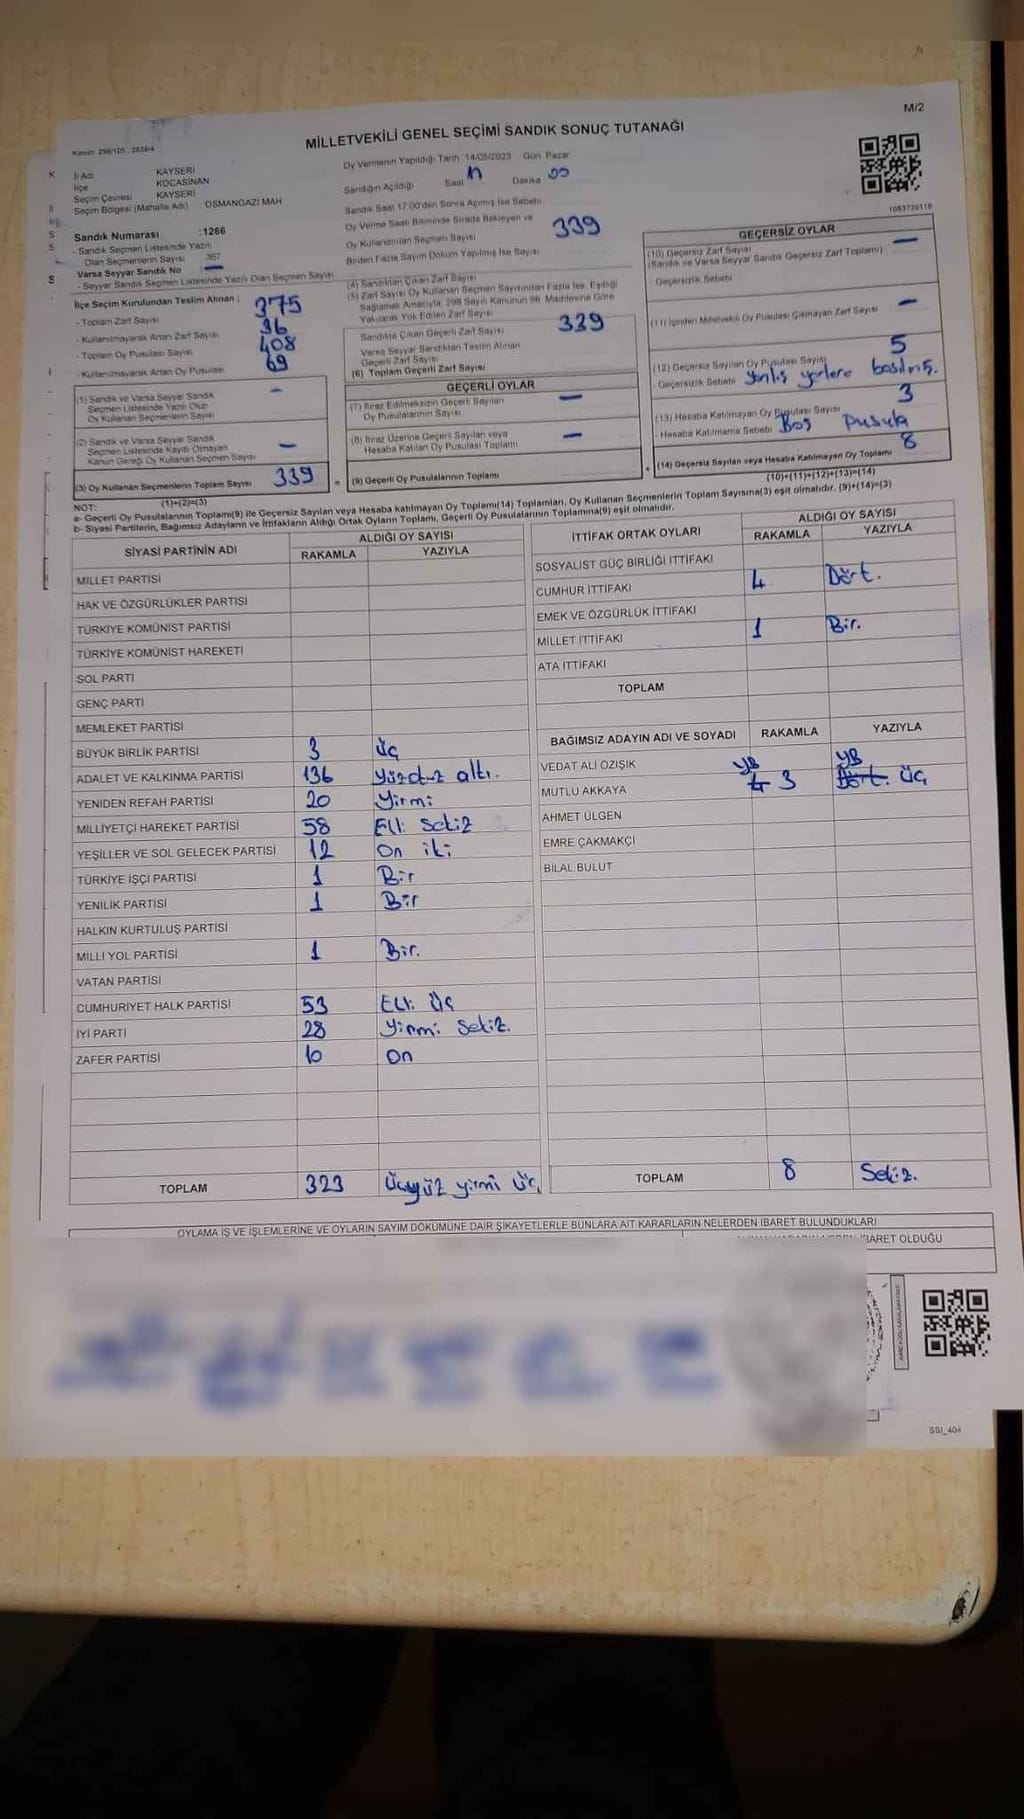 M/2
MİLLETVEKİLİ GENEL SEÇİMİ SANDIK SONUÇ TUTANAĞI
İl Adı KAYSERİ
İlçe KOCASİNAN
Seçim Çevresi KAYSERİ
Seçim Bölgesi (Mahalle Adı) OSMANGAZİ MAH
Sandık Numarası :1266
- Sandık Seçmen Listesinde Yazılı
Olan Seçmenlerin Sayısı 367
Varsa Seyyar Sandık No —
- Seyyar Sandık Seçmen Listesinde Yazılı Olan Seçmen Sayısı
İlçe Seçim Kurulundan Teslim Alınan ;
- Toplam Zarf Sayısı 375
- Kullanılmayarak Artan Zarf Sayısı 36
- Toplam Oy Pusulası Sayısı 408
- Kullanılmayarak Artan Oy Pusulası 69
(1) Sandık ve Varsa Seyyar Sandık
Seçmen Listesinde Yazılı Olup
Oy Kullanan Seçmenlerin Sayısı —
(2) Sandık ve Varsa Seyyar Sandık
Seçmen Listesinde Kayıtlı Olmayan
Kanun Gereği Oy Kullanan Seçmen Sayısı —
(3) Oy Kullanan Seçmenlerin Toplam Sayısı 339
(1)+(2)=(3)
Oy Vermenin Yapıldığı Tarih :14/05/2023 Gün Pazar
Sandığın Açıldığı Saat Dakika
Sandık Saat 17:00'den Sonra Açılmış İse Sebebi
Oy Verme Saati Bitiminde Sırada Bekleyen ve
Oy Kullandırılan Seçmen Sayısı 339
Birden Fazla Sayım Döküm Yapılmış İse Sayısı
(4) Sandıktan Çıkan Zarf Sayısı
(5) Zarf Sayısı Oy Kullanan Seçmen Sayısından Fazla İse, Eşitliği
Sağlamak Amacıyla, 298 Sayılı Kanunun 98. Maddesine Göre
Yakılarak Yok Edilen Zarf Sayısı
Sandıkta Çıkan Geçerli Zarf Sayısı 339
Varsa Seyyar Sandıktan Teslim Alınan
Geçerli Zarf Sayısı
(6) Toplam Geçerli Zarf Sayısı
GEÇERLİ OYLAR
(7) İtiraz Edilmeksizin Geçerli Sayılan
Oy Pusulalarının Sayısı —
(8) İtiraz Üzerine Geçerli Sayılan veya
Hesaba Katılan Oy Pusulaları Toplamı —
(9) Geçerli Oy Pusulalarının Toplamı
1053730116
GEÇERSİZ OYLAR
(10) Geçersiz Zarf Sayısı —
(Sandık ve Varsa Seyyar Sandık Geçersiz Zarf Toplamı)
- Geçersizlik Sebebi
(11) İçinden Milletvekili Oy Pusulası Çıkmayan Zarf Sayısı —
(12) Geçersiz Sayılan Oy Pusulası Sayısı 5
- Geçersizlik Sebebi Yanlış yerlere basılmış.
(13) Hesaba Katılmayan Oy Pusulası Sayısı 3
- Hesaba Katılmama Sebebi Boş pusula
(14) Geçersiz Sayılan veya Hesaba Katılmayan Oy Toplamı 8
(10)+(11)+(12)+(13)=(14)
NOT:
a- Geçerli Oy Pusulalarının Toplamı(9) ile Geçersiz Sayılan veya Hesaba katılmayan Oy Toplamı(14) Toplamları, Oy Kullanan Seçmenlerin Toplam Sayısına(3) eşit olmalıdır. (9)+(14)=(3)
b- Siyasi Partilerin, Bağımsız Adayların ve İttifakların Aldığı Ortak Oyların Toplamı, Geçerli Oy Pusulalarının Toplamına(9) eşit olmalıdır.
SİYASİ PARTİNİN ADI ALDIĞI OY SAYISI
RAKAMLA YAZIYLA
MİLLET PARTİSİ
HAK VE ÖZGÜRLÜKLER PARTİSİ
TÜRKİYE KOMÜNİST PARTİSİ
TÜRKİYE KOMÜNİST HAREKETİ
SOL PARTİ
GENÇ PARTİ
MEMLEKET PARTİSİ
BÜYÜK BİRLİK PARTİSİ 3 üç
ADALET VE KALKINMA PARTİSİ 136 yüzotuz altı.
YENİDEN REFAH PARTİSİ 20 Yirmi
MİLLİYETÇİ HAREKET PARTİSİ 58 Elli Sekiz
YEŞİLLER VE SOL GELECEK PARTİSİ 12 On iki
TÜRKİYE İŞÇİ PARTİSİ 1 Bir
YENİLİK PARTİSİ 1 Bir
HALKIN KURTULUŞ PARTİSİ
MİLLİ YOL PARTİSİ 1 Bir.
VATAN PARTİSİ
CUMHURİYET HALK PARTİSİ 53 Elli üç
İYİ PARTİ 28 Yirmi Sekiz.
ZAFER PARTİSİ 10 On
TOPLAM 323 Üçyüz yirmi üç
İTTİFAK ORTAK OYLARI ALDIĞI OY SAYISI
RAKAMLA YAZIYLA
SOSYALİST GÜÇ BİRLİĞİ İTTİFAKI
CUMHUR İTTİFAKI 4 Dört.
EMEK VE ÖZGÜRLÜK İTTİFAKI
MİLLET İTTİFAKI 1 Bir.
ATA İTTİFAKI
TOPLAM
BAĞIMSIZ ADAYIN ADI VE SOYADI RAKAMLA YAZIYLA
VEDAT ALİ ÖZIŞIK YB YB
MUTLU AKKAYA 4 3 Dört. üç
AHMET ÜLGEN
EMRE ÇAKMAKÇİ
BİLAL BULUT
TOPLAM 8 Sekiz.
OYLAMA İŞ VE İŞLEMLERİNE VE OYLARIN SAYIM DÖKÜMÜNE DAİR ŞİKAYETLERLE BUNLARA AİT KARARLARIN NELERDEN İBARET BULUNDUKLARI
İBARET OLDUĞU
SSI_404